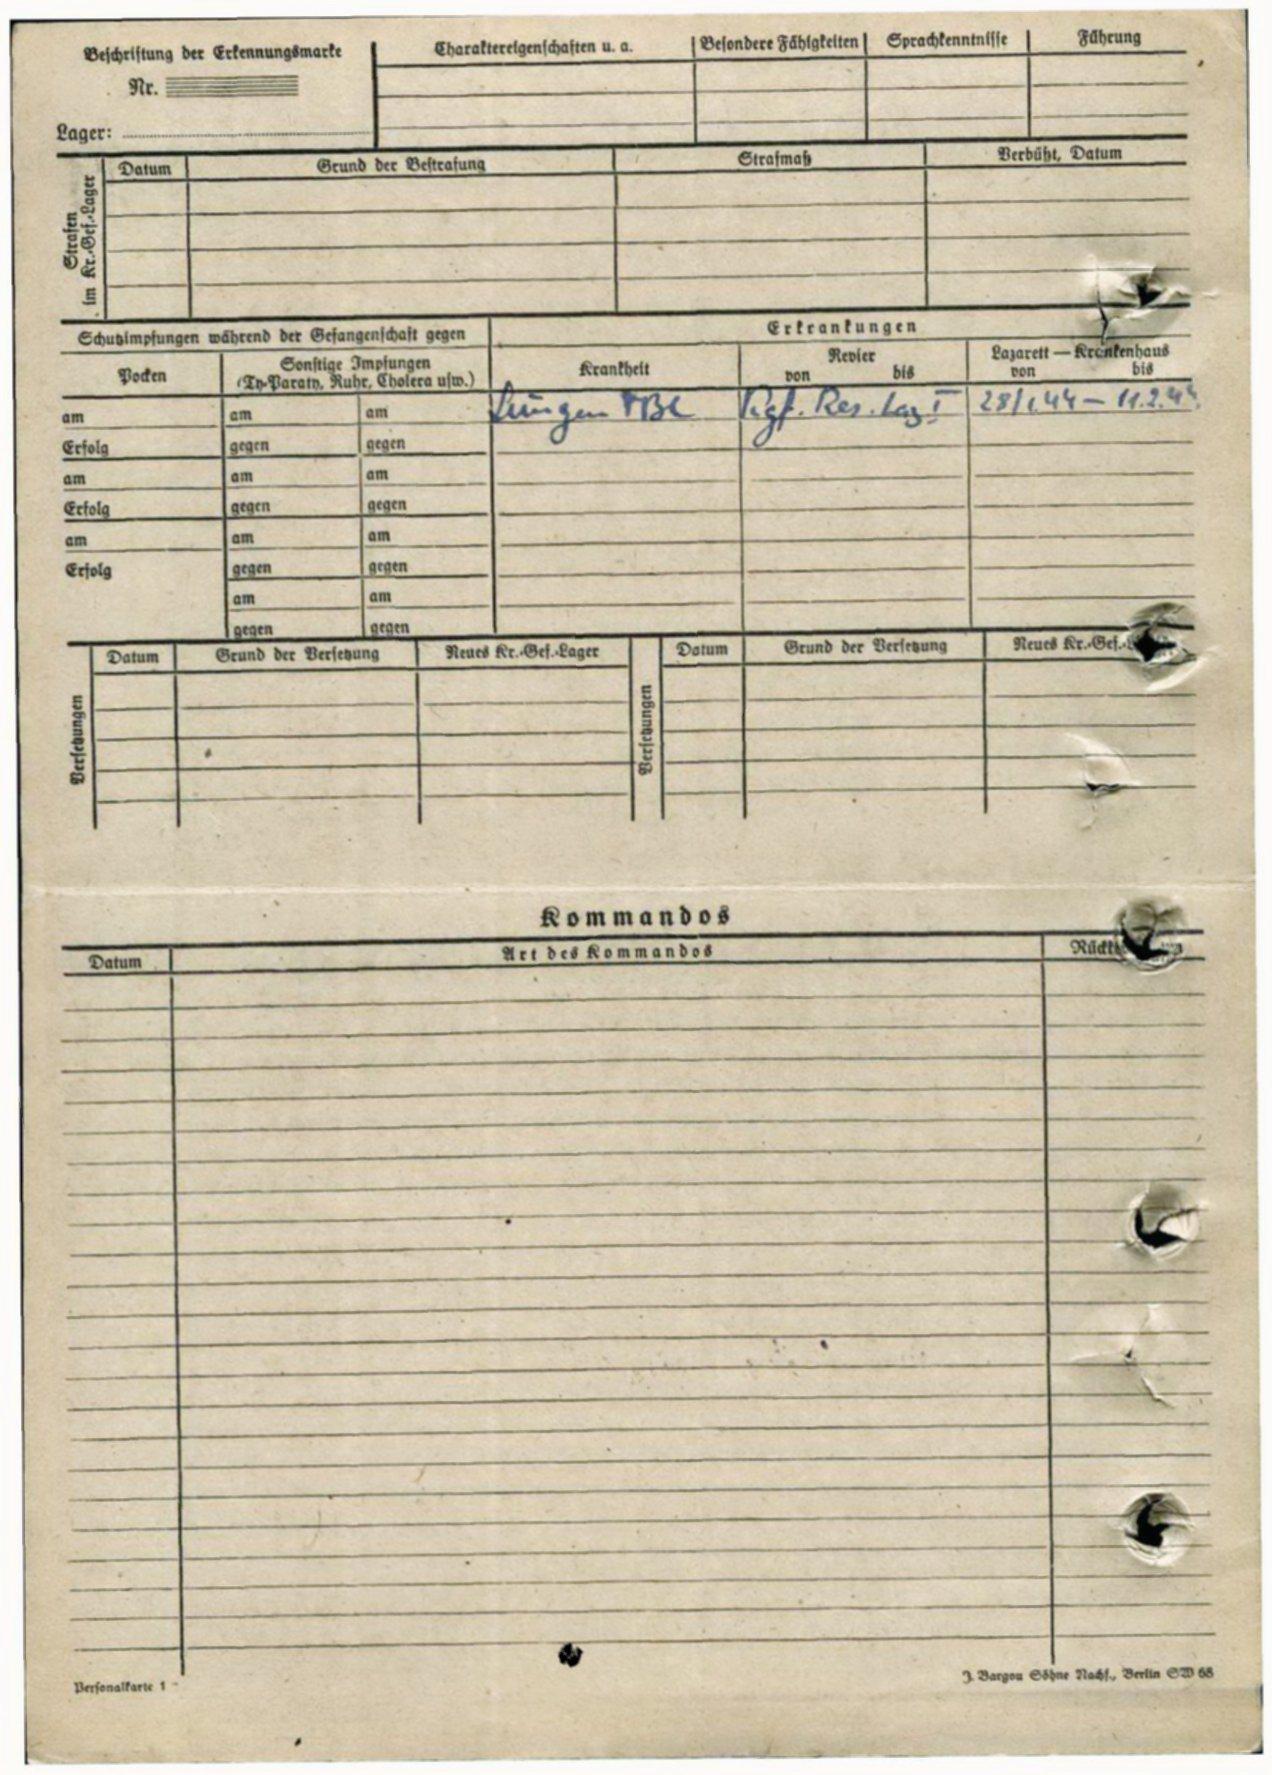 Beschriftung der Erkennungsmarke
Nr.
Lager:
Charaktereigenschaften u. a.
Besondere Fähigkeiten
Sprachkenntnisse
Führung
Strafen
im Kr.-Gef.-Lager
Datum
Grund der Bestrafung
Strafmaß
Verbüßt, Datum
Schutzimpfungen während der Gefangenschaft gegen
Erkrankungen
Pocken
Sonstige Impfungen
(Ty-Paraty, Ruhr, Cholera usw.)
Krankheit
Revier
von bis
Lazarett — Krankenhaus
von bis
am am am Lungen TBC Kgf. Res. Laz I 28/1.44 – 11.2.44.
Erfolg gegen gegen
am am am
Erfolg gegen gegen
am am am
Erfolg gegen gegen
am am
gegen gegen
Versetzungen
Datum
Grund der Versetzung
Neues Kr.-Gef.-Lager
Versetzungen
Datum
Grund der Versetzung
Neues Kr.-Gef.-
Kommandos
Datum
Art des Kommandos
Personalkarte 1
J. Bargou Söhne Nachf., Berlin SW 68